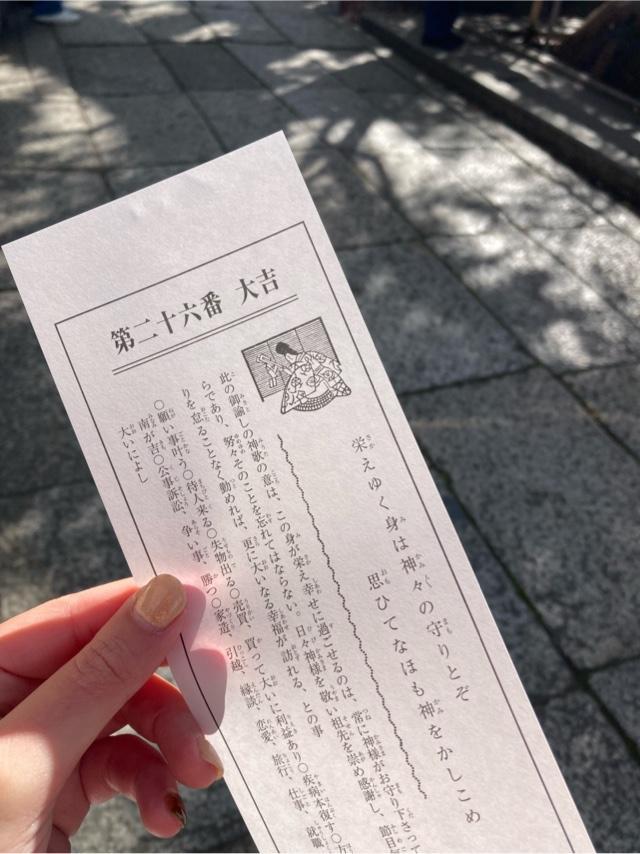 第二十六番 大吉
栄えゆく身は神々の守りとぞ
思ひてなほも神をかしこめ
此の御諭しの神歌の意は、この身が栄え幸せに過ごせるのは、常に神様がお守り下さって
らであり、努々そのことを忘れてはならない。日々神様を敬い祖先を崇め感謝し、節目
りを怠ることなく勤めれば、更に大いなる幸福が訪れる、との事
○願い事叶う○待人来る○失物出る○売買、買って大いに利益あり○疾病本復す○方
南が吉○公事訴訟、争い事、勝つ○家造、引越、縁談、恋愛、旅行、仕事、就職
大いによし